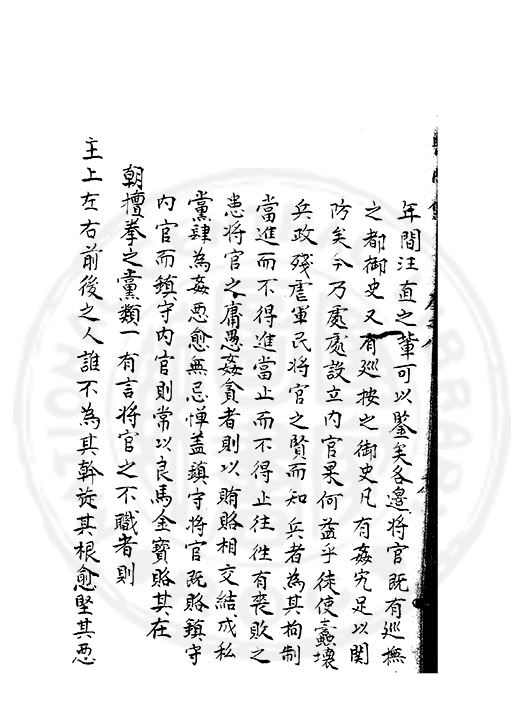 年間汪直之輩可以鑒矣各邊將官既有巡撫
之都御史又有巡按之御史凡有姦宄足以関
防矣今乃處處設立内官果何益乎徒使蠹壞
兵政殘虐軍民將官之賢而知兵者為其拘制
當進而不得進當止而不得止往往有喪敗之
患將官之庸愚姦貪者則以賄賂相交結成私
黨肆為姦惡愈無忌憚蓋鎮守將官既賂鎮守
内官而鎮守内官則常以良馬金寶賂其在
朝擅拳之黨類一有言將官之不職者則
主上左右前後之人誰不為其斡旋其根愈堅其惡